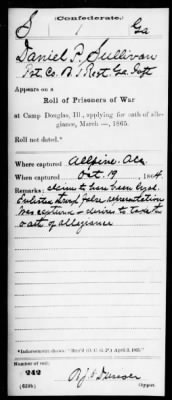 S (Confederate.) Ga
Daniel P. Sullivan
Pvt. Co. B, 1 Regt. Ga Inft
Appears on a
Roll of Prisoners of War
at Camp Douglas, Ill., applying for oath of alle-
giance, March —, 1865.
Roll not dated.*
Where captured Allpine. Ala.
When captured Oct. 19, 1864
Remarks: claim to have been loyal.
Enlisted through false representation
was captured & desires to take the
oath of allegiance
*Indorsement shows: "Rec'd (O. C. G. P.) April 3, 1865."
Number of roll:
242
(639b)
Copyist.